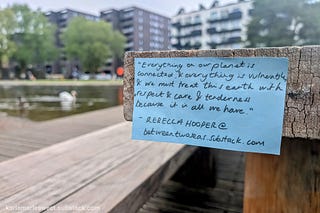 "Everything on our planet is
connected & everything is vulnerable
& we must treat this earth with
respect & care & tenderness
because it is all we have."
- REBECCA HOOPER @
betweentwoseas.substack.com